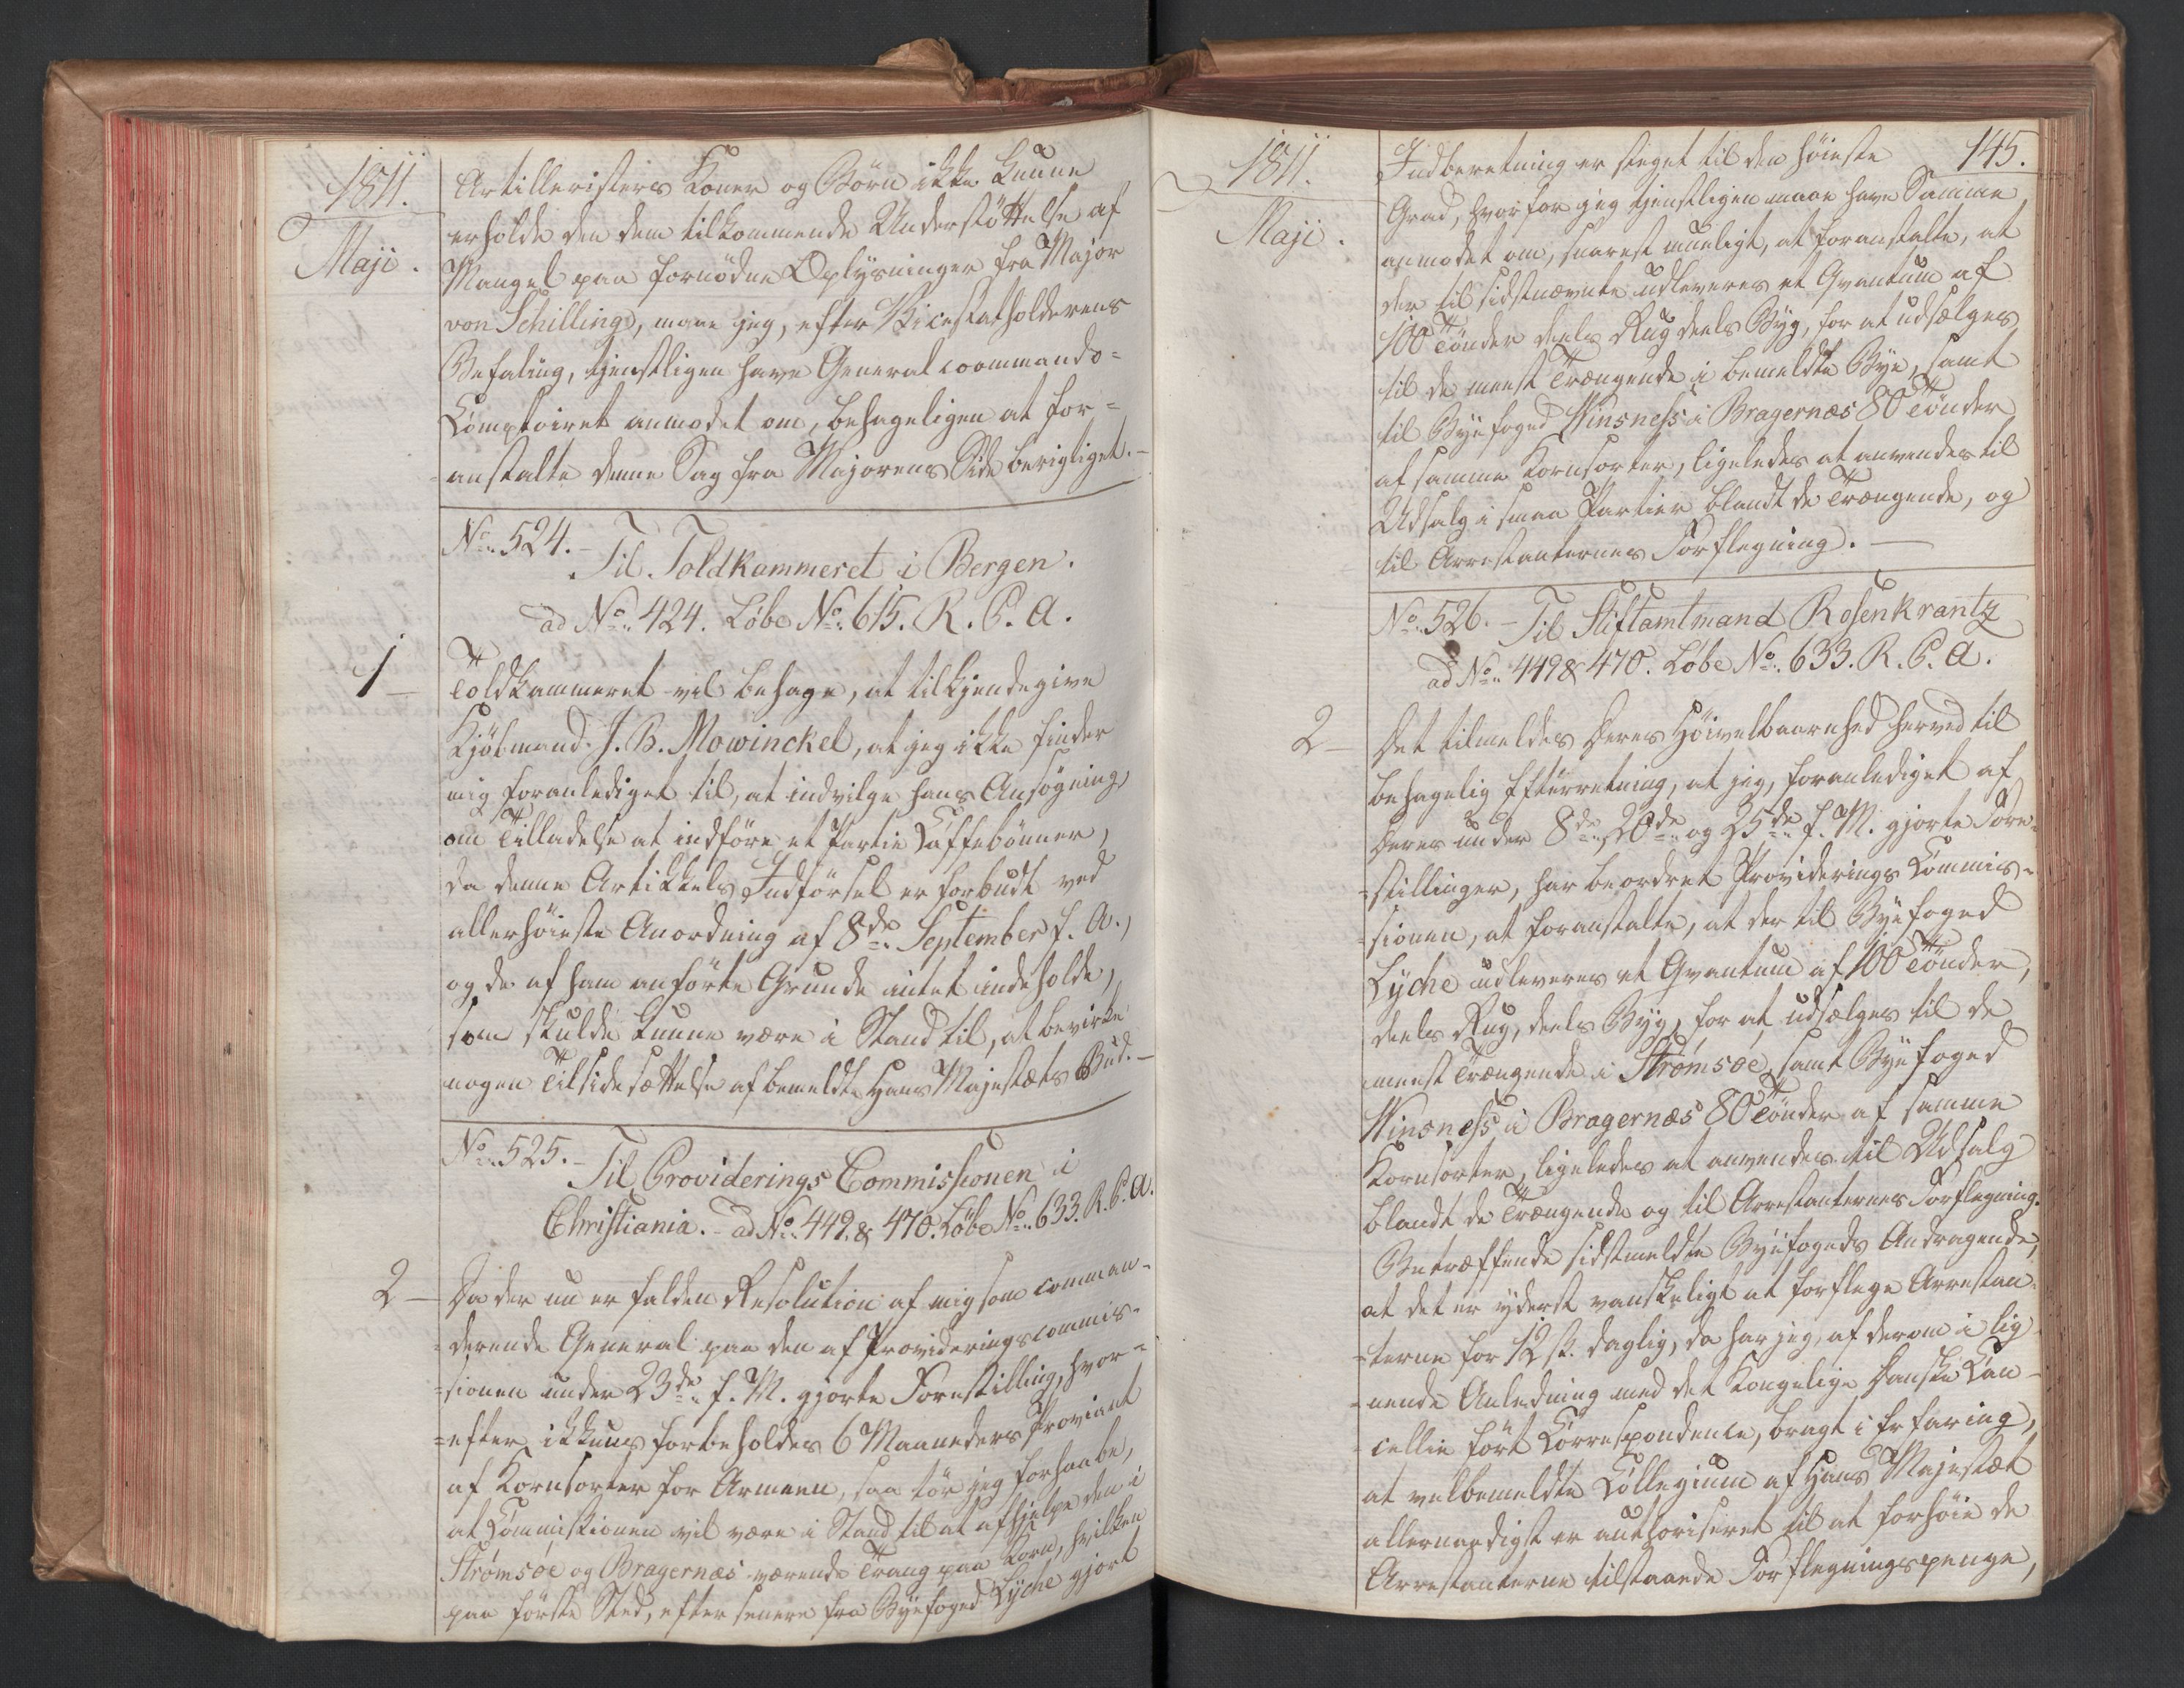 1811.
Maji.
Artilleristers Koner og Börn ikke kunne
erholde den dem tilkommende Understöttelse af
Mangel paa fornødne Oplysninger fra Major
von Schilling, maae jeg, efter Vicestatholderens
Befaling, tjenstligen have Generalcoommando=
Comptoiret anmodet om, behageligen at for=
anstalte denne Sag fra Majorens Side berigtiget.-
No. 524.- Til Toldkammeret i Bergen.
ad No. 424. Løbe No. 615. R. P. A.
1 -
Toldkammeret vil behage, at tilkjendegive
Kjöbmand J. B. Mowinckel, at jeg ikke finder
mig foranlediget til, at indvilge hans Ansøgning
om Tilladelse at indföre et Partie Caffebønner,
da denne Artikkels Indförsel er forbudt ved
allerhöieste Anordning af 8de September f. A.,
og de af ham anförte Grunde intet indeholde,
som skulde kunne være i Stand til, at bevirke
nogen Tilsidesættelse af bemeldte Hans Majestæts Bud.-
No. 525.- Til Providerings Commissionen i
Christiania.- ad No. 449. & 470. Løbe No. 633. R. P. A.
2 - Da der nu er falden Resolution af mig som comman-
=derende General paa den af Provideringscommis-
=sionen under 23de f. M. gjorte Forestilling, hvor-
=efter ikkuns forbeholdes 6 Maaneders Proviant
af Kornsorter for Armeen, saa tör jeg forhaabe,
at Commissionen vil være i Stand til at afhjelpe den i
Strømsøe og Bragernæs værende Trang paa Korn, hvilken
paa förste Sted, efter senere fra Byefoged Lyche gjort
1811.
Maji.
145.
Indberetning er steget til den höieste
Grad, hvorfor jeg tjenstligen maae have Samme
anmodet om, snarest mueligt, at foranstalte, at
der til sidstnævnte udleveres et Qvantum af
100 Tönder deels Rug deels Byg, for at udsælges
til de meest Trængende i bemeldte Bye, samt
til Byefoged Winsness i Bragernæs 80 Tönder
af samme Kornsorter, ligeledes at anvendes til
Udsalg i smaa Partier blandt de Trængende, og
til Arrestanternes Forflegning.-
No. 526.- Til Stiftamtmand Rosenkrantz
ad No. 449 & 470. Løbe No. 633. R. P. A.
2 - Det tilmeldes Deres Höivelbaarnhed herved til
behagelig Efterretning, at jeg, foranlediget af
Deres under 8de 20de og 25de f. M. gjorte Fore-
=stillinger, har beordret Providerings Commis-
=sionen, at foranstalte, at der til Byefoged
Lyche udleveres et Qvantum af 100 Tönder,
deels Rug, deels Byg, for at udsælges til de
meest Trængende i Strømsøe, samt Byefoged
Winsness i Bragernæs 80 Tönder af samme
Kornsorter, ligeledes at anvendes til Udsalg
blandt de Trængende og til Arrestanternes Forflegning.
Betræffende sidstmeldte Byefogeds Andragende,
at det er yderst vanskeligt at forflege Arrestan-
=terne for 12 sk. daglig, da har jeg, af derom i lig-
=nende Anledning med det Kongelige Danske Can-
cellie fört Correspondence, bragt i Erfaring,
at velbemeldte Collegium af Hans Majestæt
allernaadigst er authoriseret til at forhöie de
Arrestanterne tilstaaede Forflegningspenge,